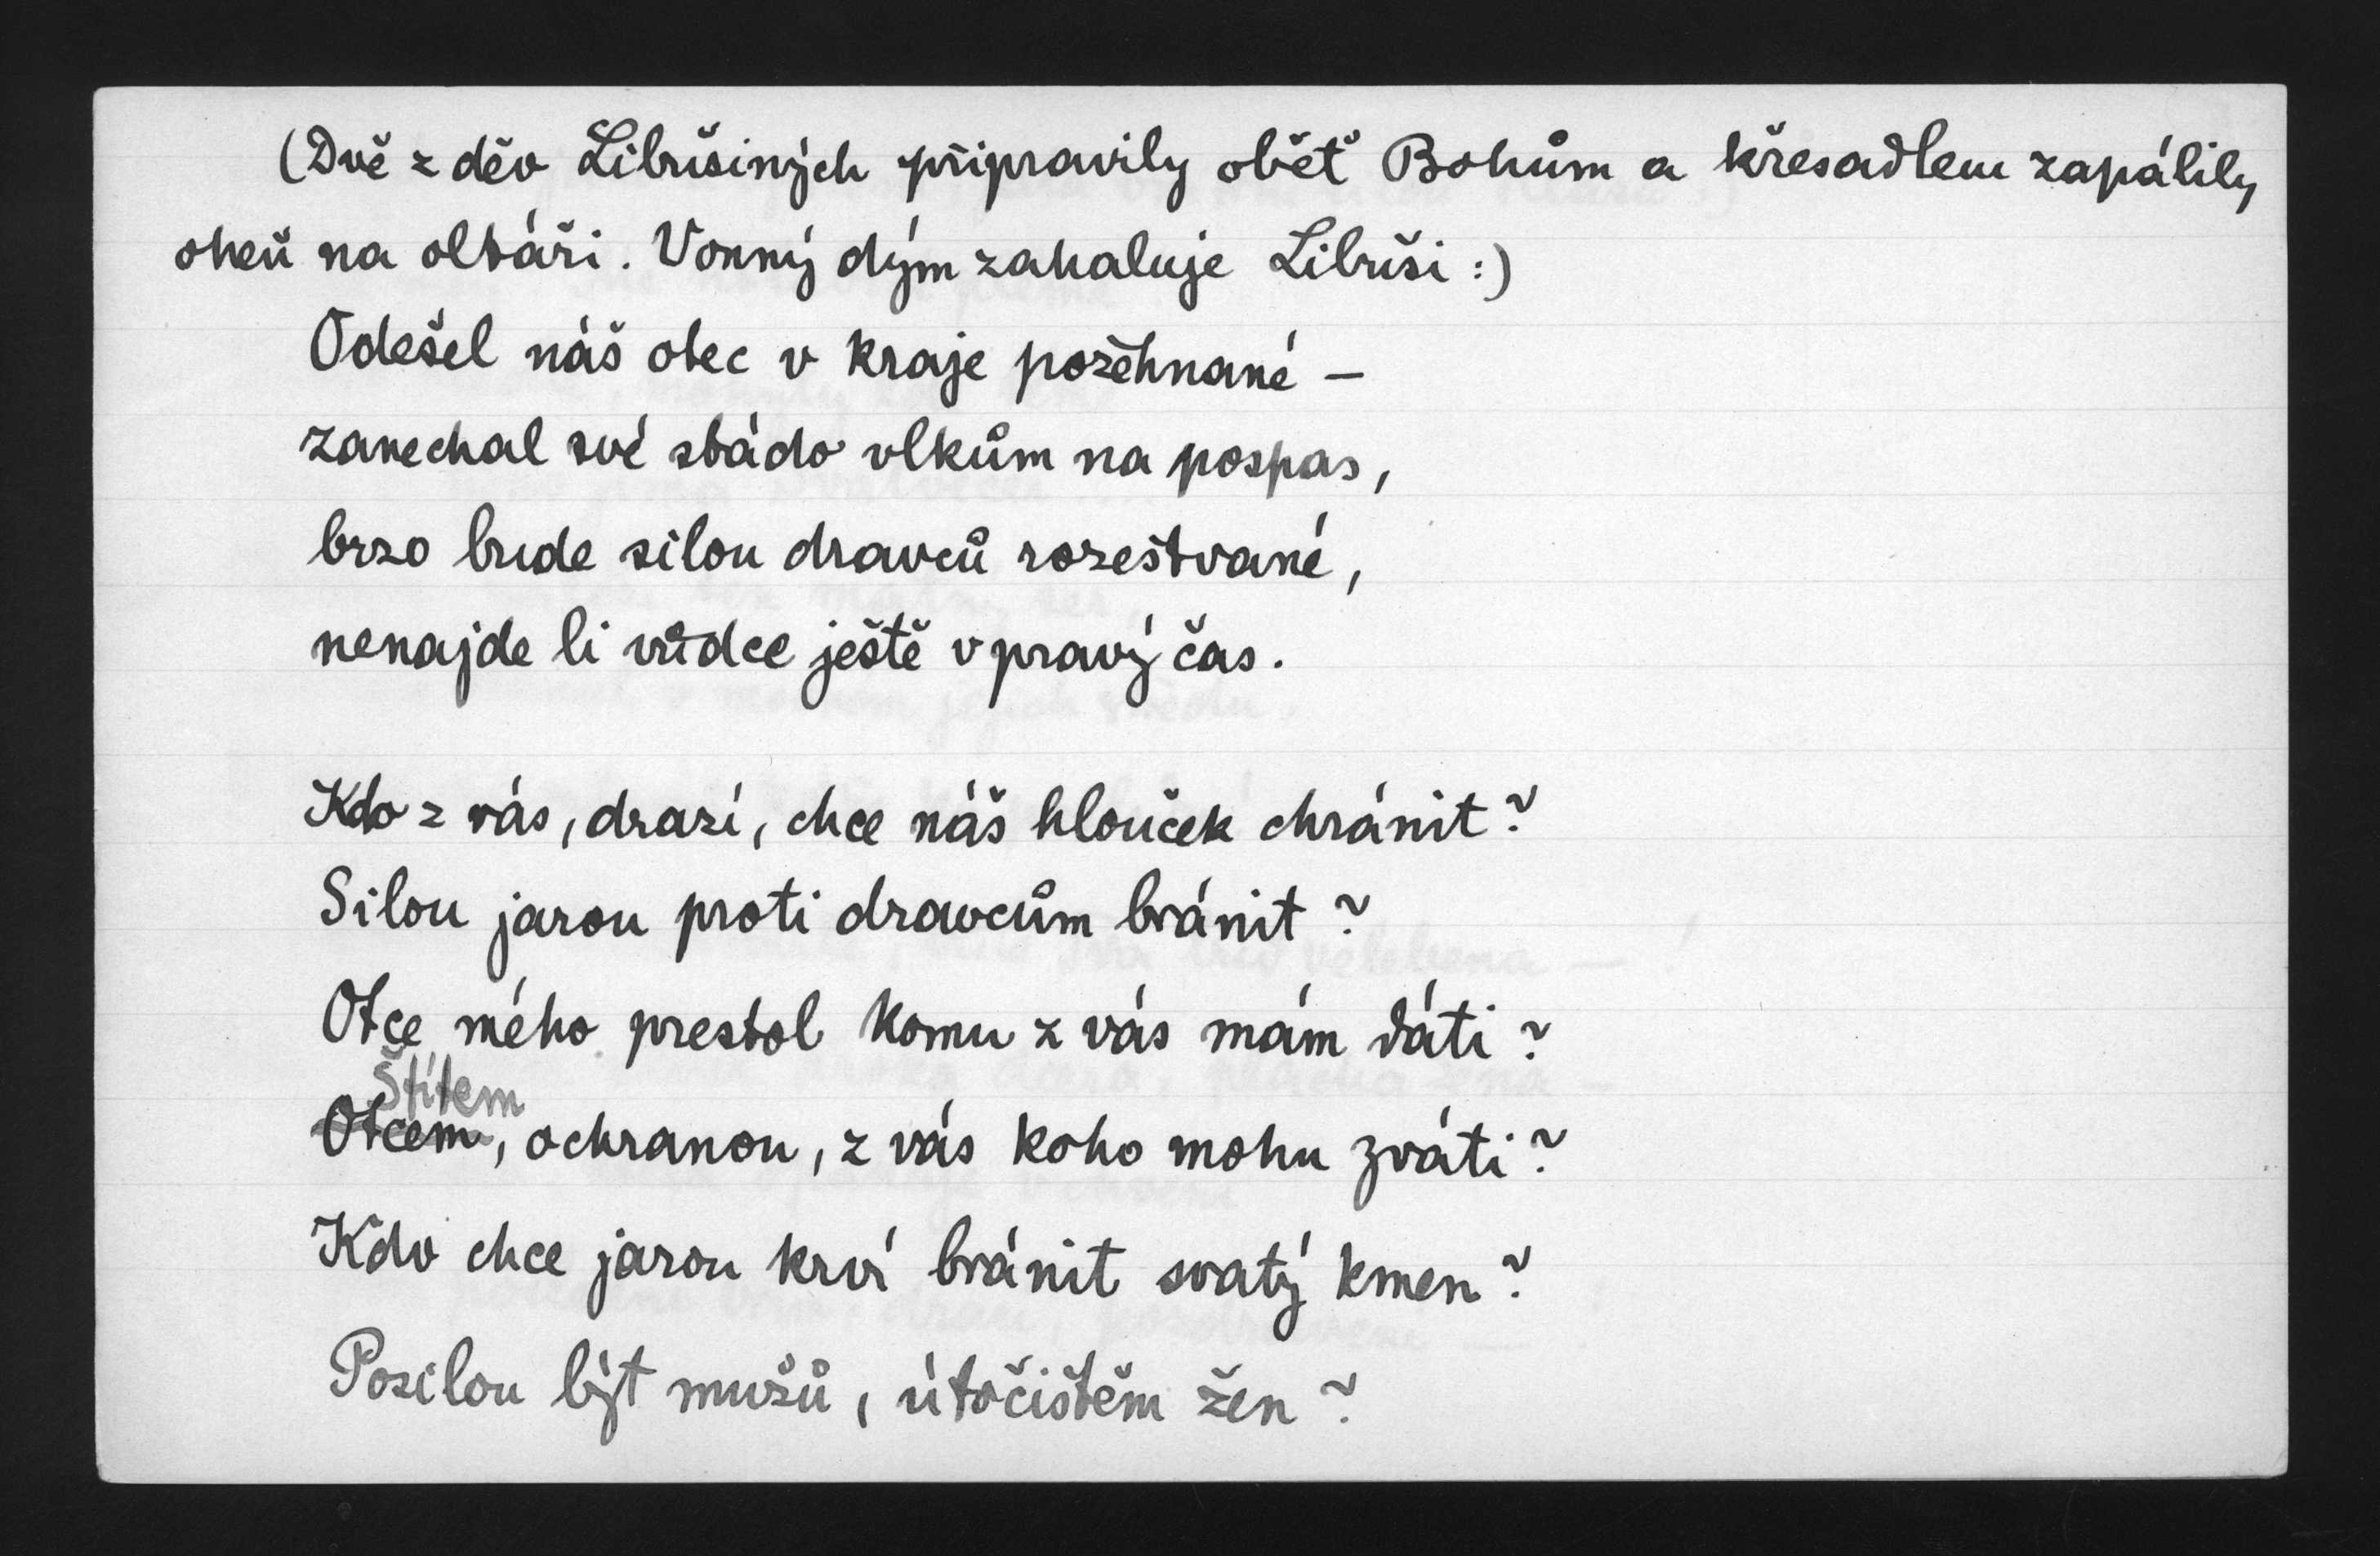 (Dvě z děv Libušiných připravily oběť Bohům a křesadlem zapálily
oheň na oltáři. Vonný dým zahaluje Libuši :)
Odešel náš otec v kraje požehnané –
zanechal své stádo vlkům na pospas,
brzo bude silou dravců rozeštvané,
nenajde li vůdce ještě v pravý čas.
Kdo z vás, drazí, chce náš hlouček chránit?
Silou jarou proti dravcům bránit?
Otce mého prestol komu z vás mám dáti?
Štítem
Otcem, ochranou, z vás koho mohu zváti?
Kdo chce jarou krví bránit svatý kmen?
Posilou být mužů, útočištěm žen?